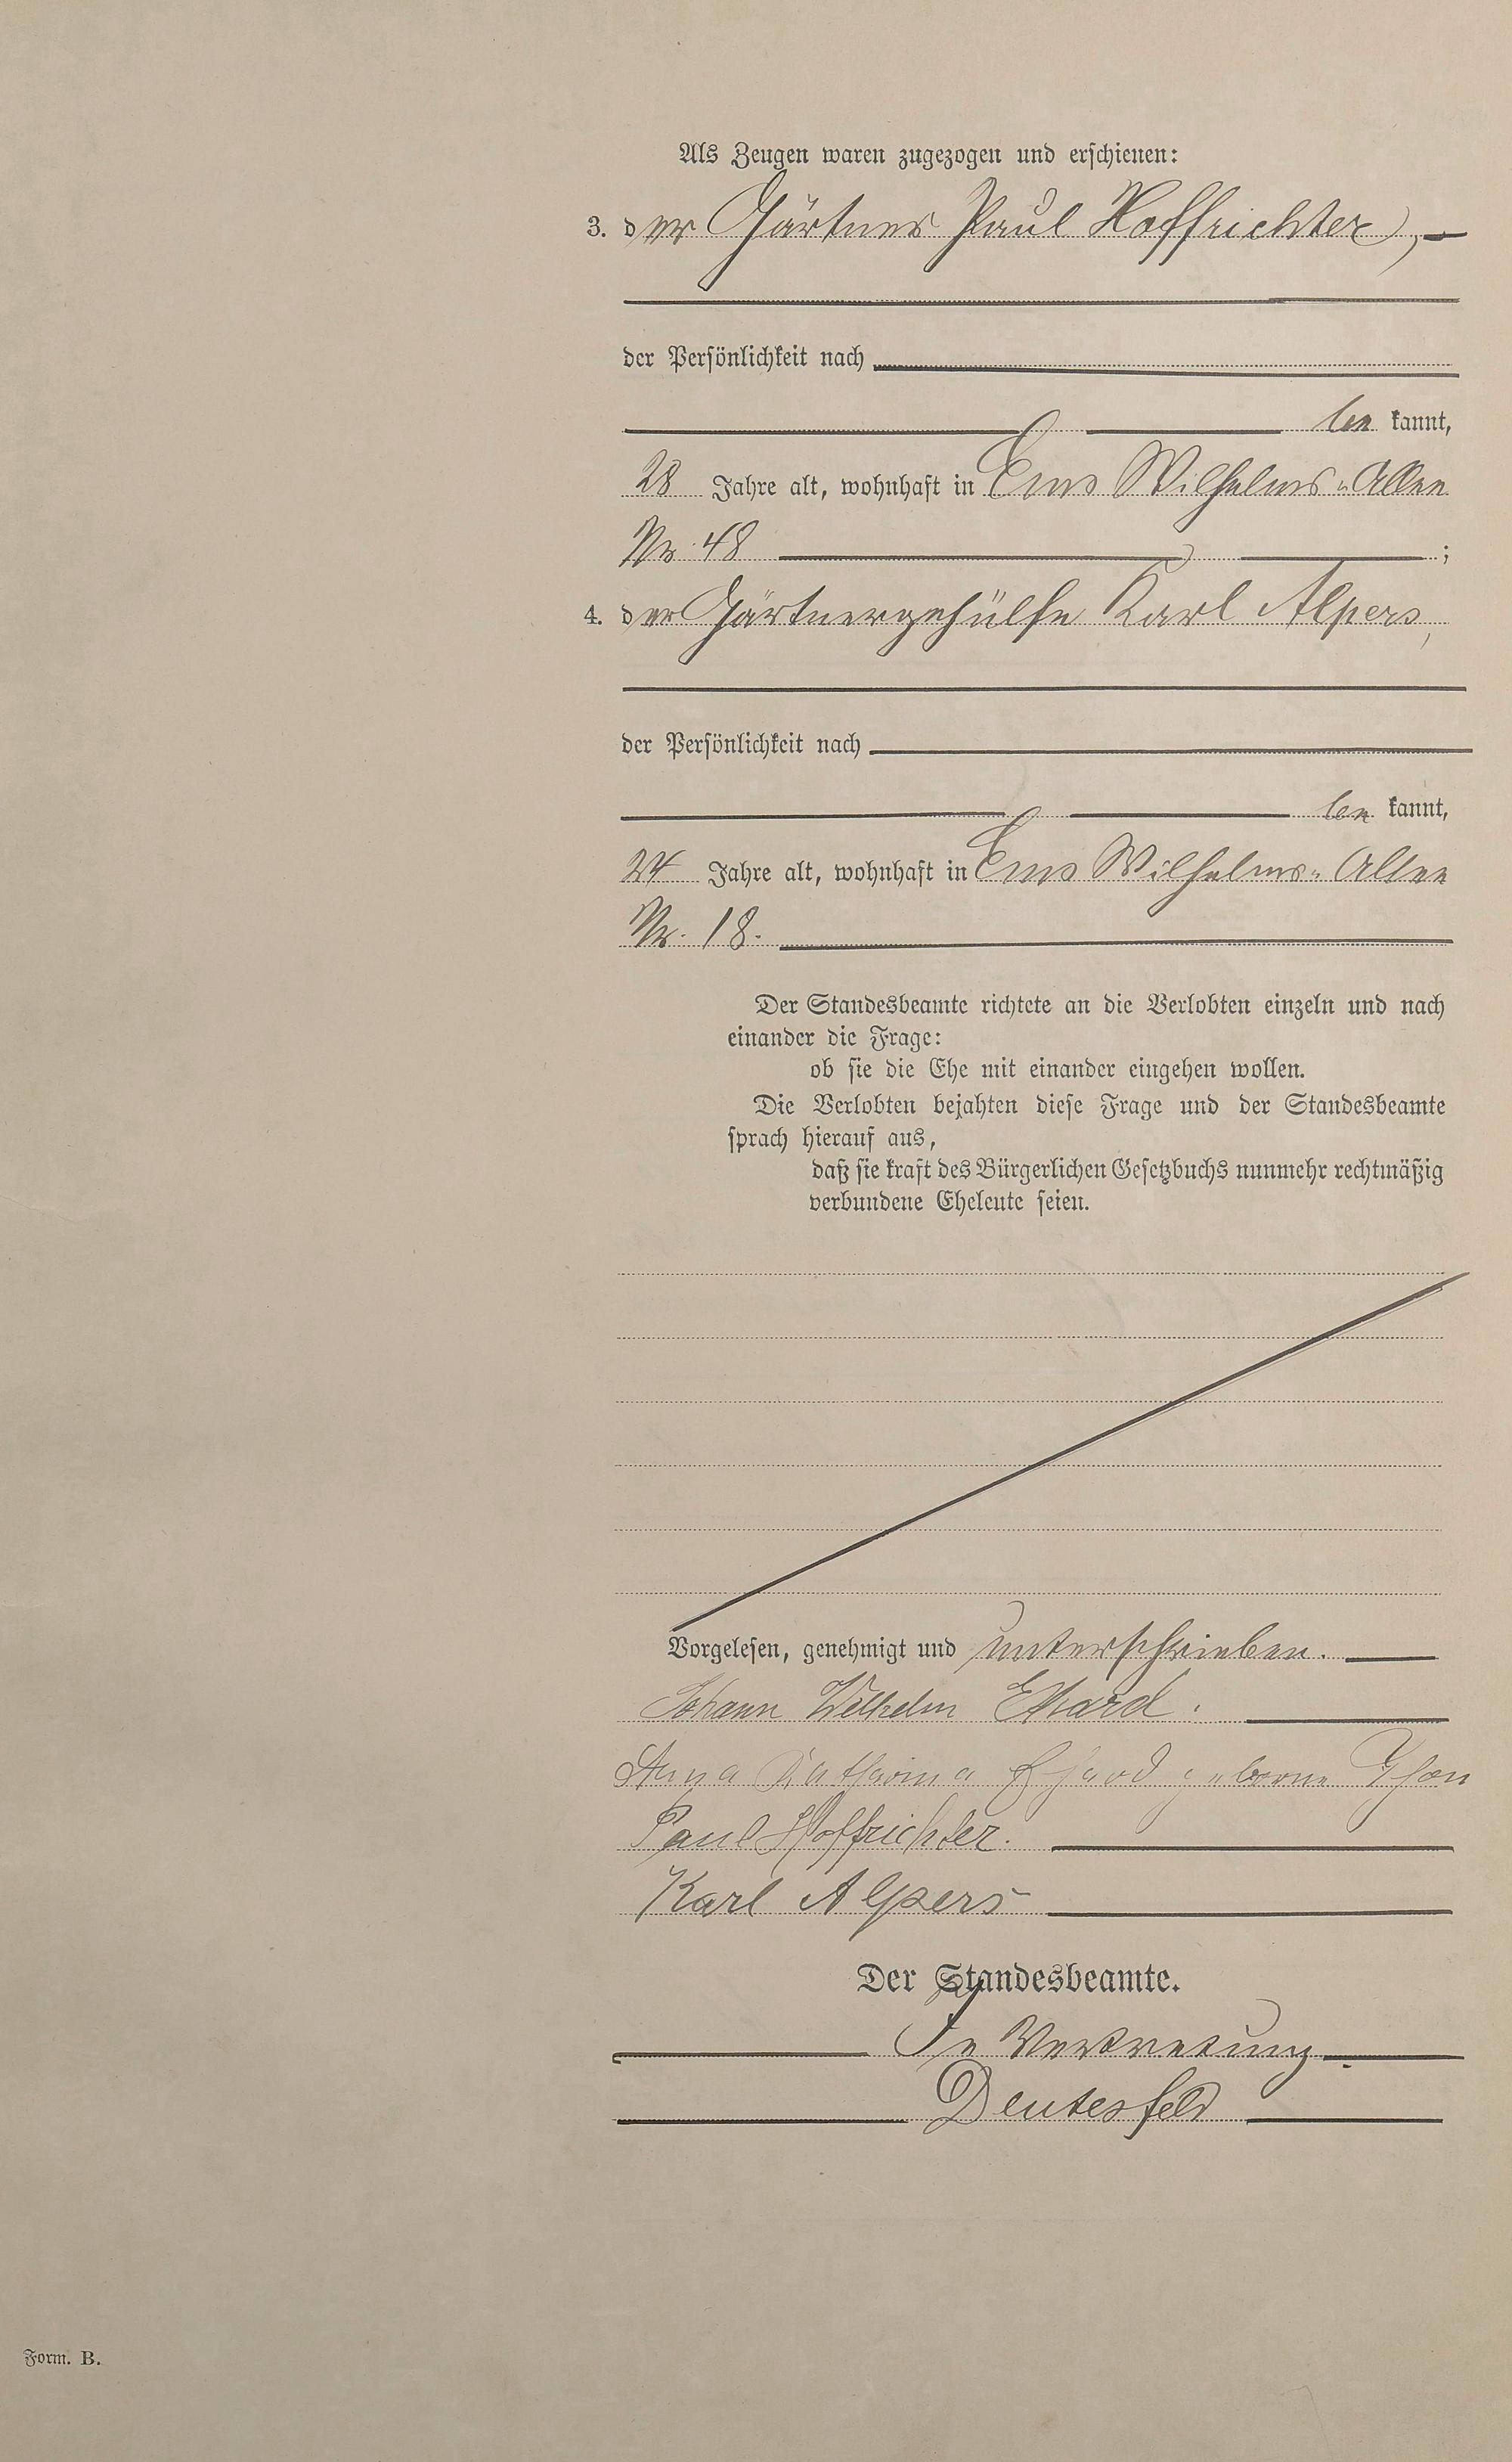 Als Zeugen waren zugezogen und erschienen:
3. der Gärtner Paul Hoffrichter,
der Persönlichkeit nach
be kannt,
28 Jahre alt, wohnhaft in Ems Wilhelms-Allee
Nr. 48 ;
4. der Gärtnergehülfe Karl Alpers,
der Persönlichkeit nach
be kannt,
24 Jahre alt, wohnhaft in Ems Wilhelms-Allee
Nr. 18.
Der Standesbeamte richtete an die Verlobten einzeln und nach
einander die Frage:
ob sie die Ehe mit einander eingehen wollen.
Die Verlobten bejahten diese Frage und der Standesbeamte
sprach hierauf aus,
daß sie kraft des Bürgerlichen Gesetzbuchs nunmehr rechtmäßig
verbundene Eheleute seien.
Vorgelesen, genehmigt und unterschrieben.
Johann Wilhelm Ehard.
Anna Katharina Ehard geborne
Paul Hoffrichter.
Karl Alpers
Der Standesbeamte.
In Vertretung
Deutesfeld
Form. B.